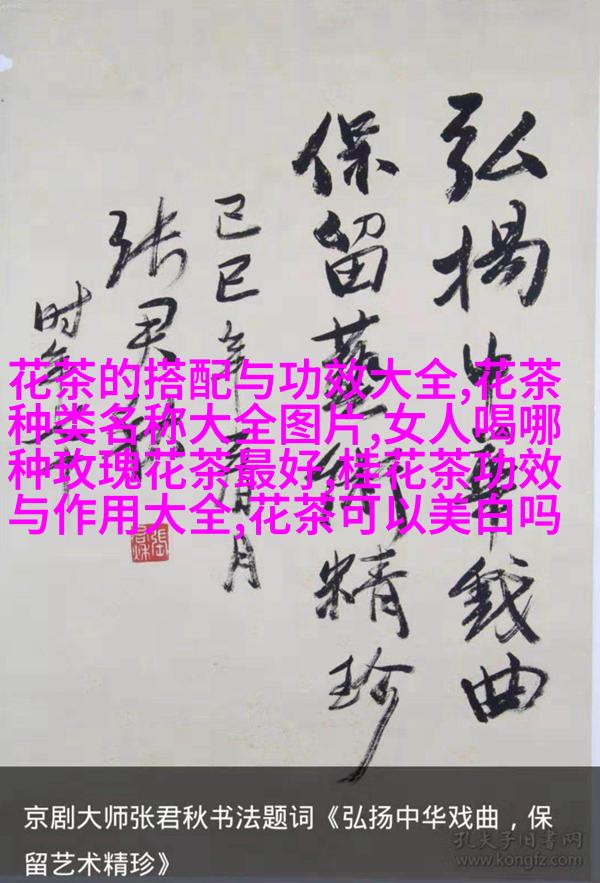 弘揚中華戲曲
保留藝術精珍
己巳年
月
张君秋
时年
花茶的搭配与功效大全,花茶
种类名称大全图片,女人喝哪
种玫瑰花茶最好,桂花茶功效
与作用大全,花茶可以美白吗
京剧大师张君秋书法题词《弘扬中华戏曲，保
留艺术精珍》
孔夫子旧书网
www.kongfz.com